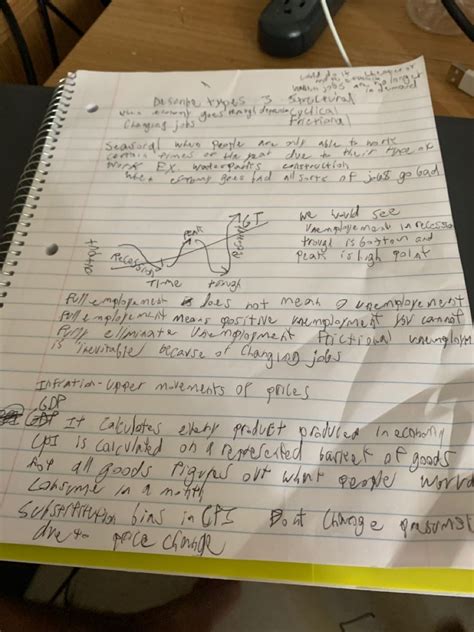 types 3 structural
jobs are no longer
in demand
when economy goes through cyclical
changing jobs frictional
Seasonal when people are only able to work
certain times of the year due to their type of
work EX waterparks construction
when economy goes bad all sorts of jobs go bad
we would see
unemployement in recession
trough is bottom and
peak is high point
peak
RECESSION
TIME
trough
Full employement is does not mean 0 unemployement
Full employement means positive unemployment you cannot
Fully eliminate unemployment Frictional unemployme
is inevitable because of changing jobs
Inflation-upper movements of prices
GDP
GDP It calculates every product produced in economy
CPI is calculated on a represented basket of goods
for all goods Figures out what people would
consume in a month
Substitution bias in CPI Dont change
due to price change